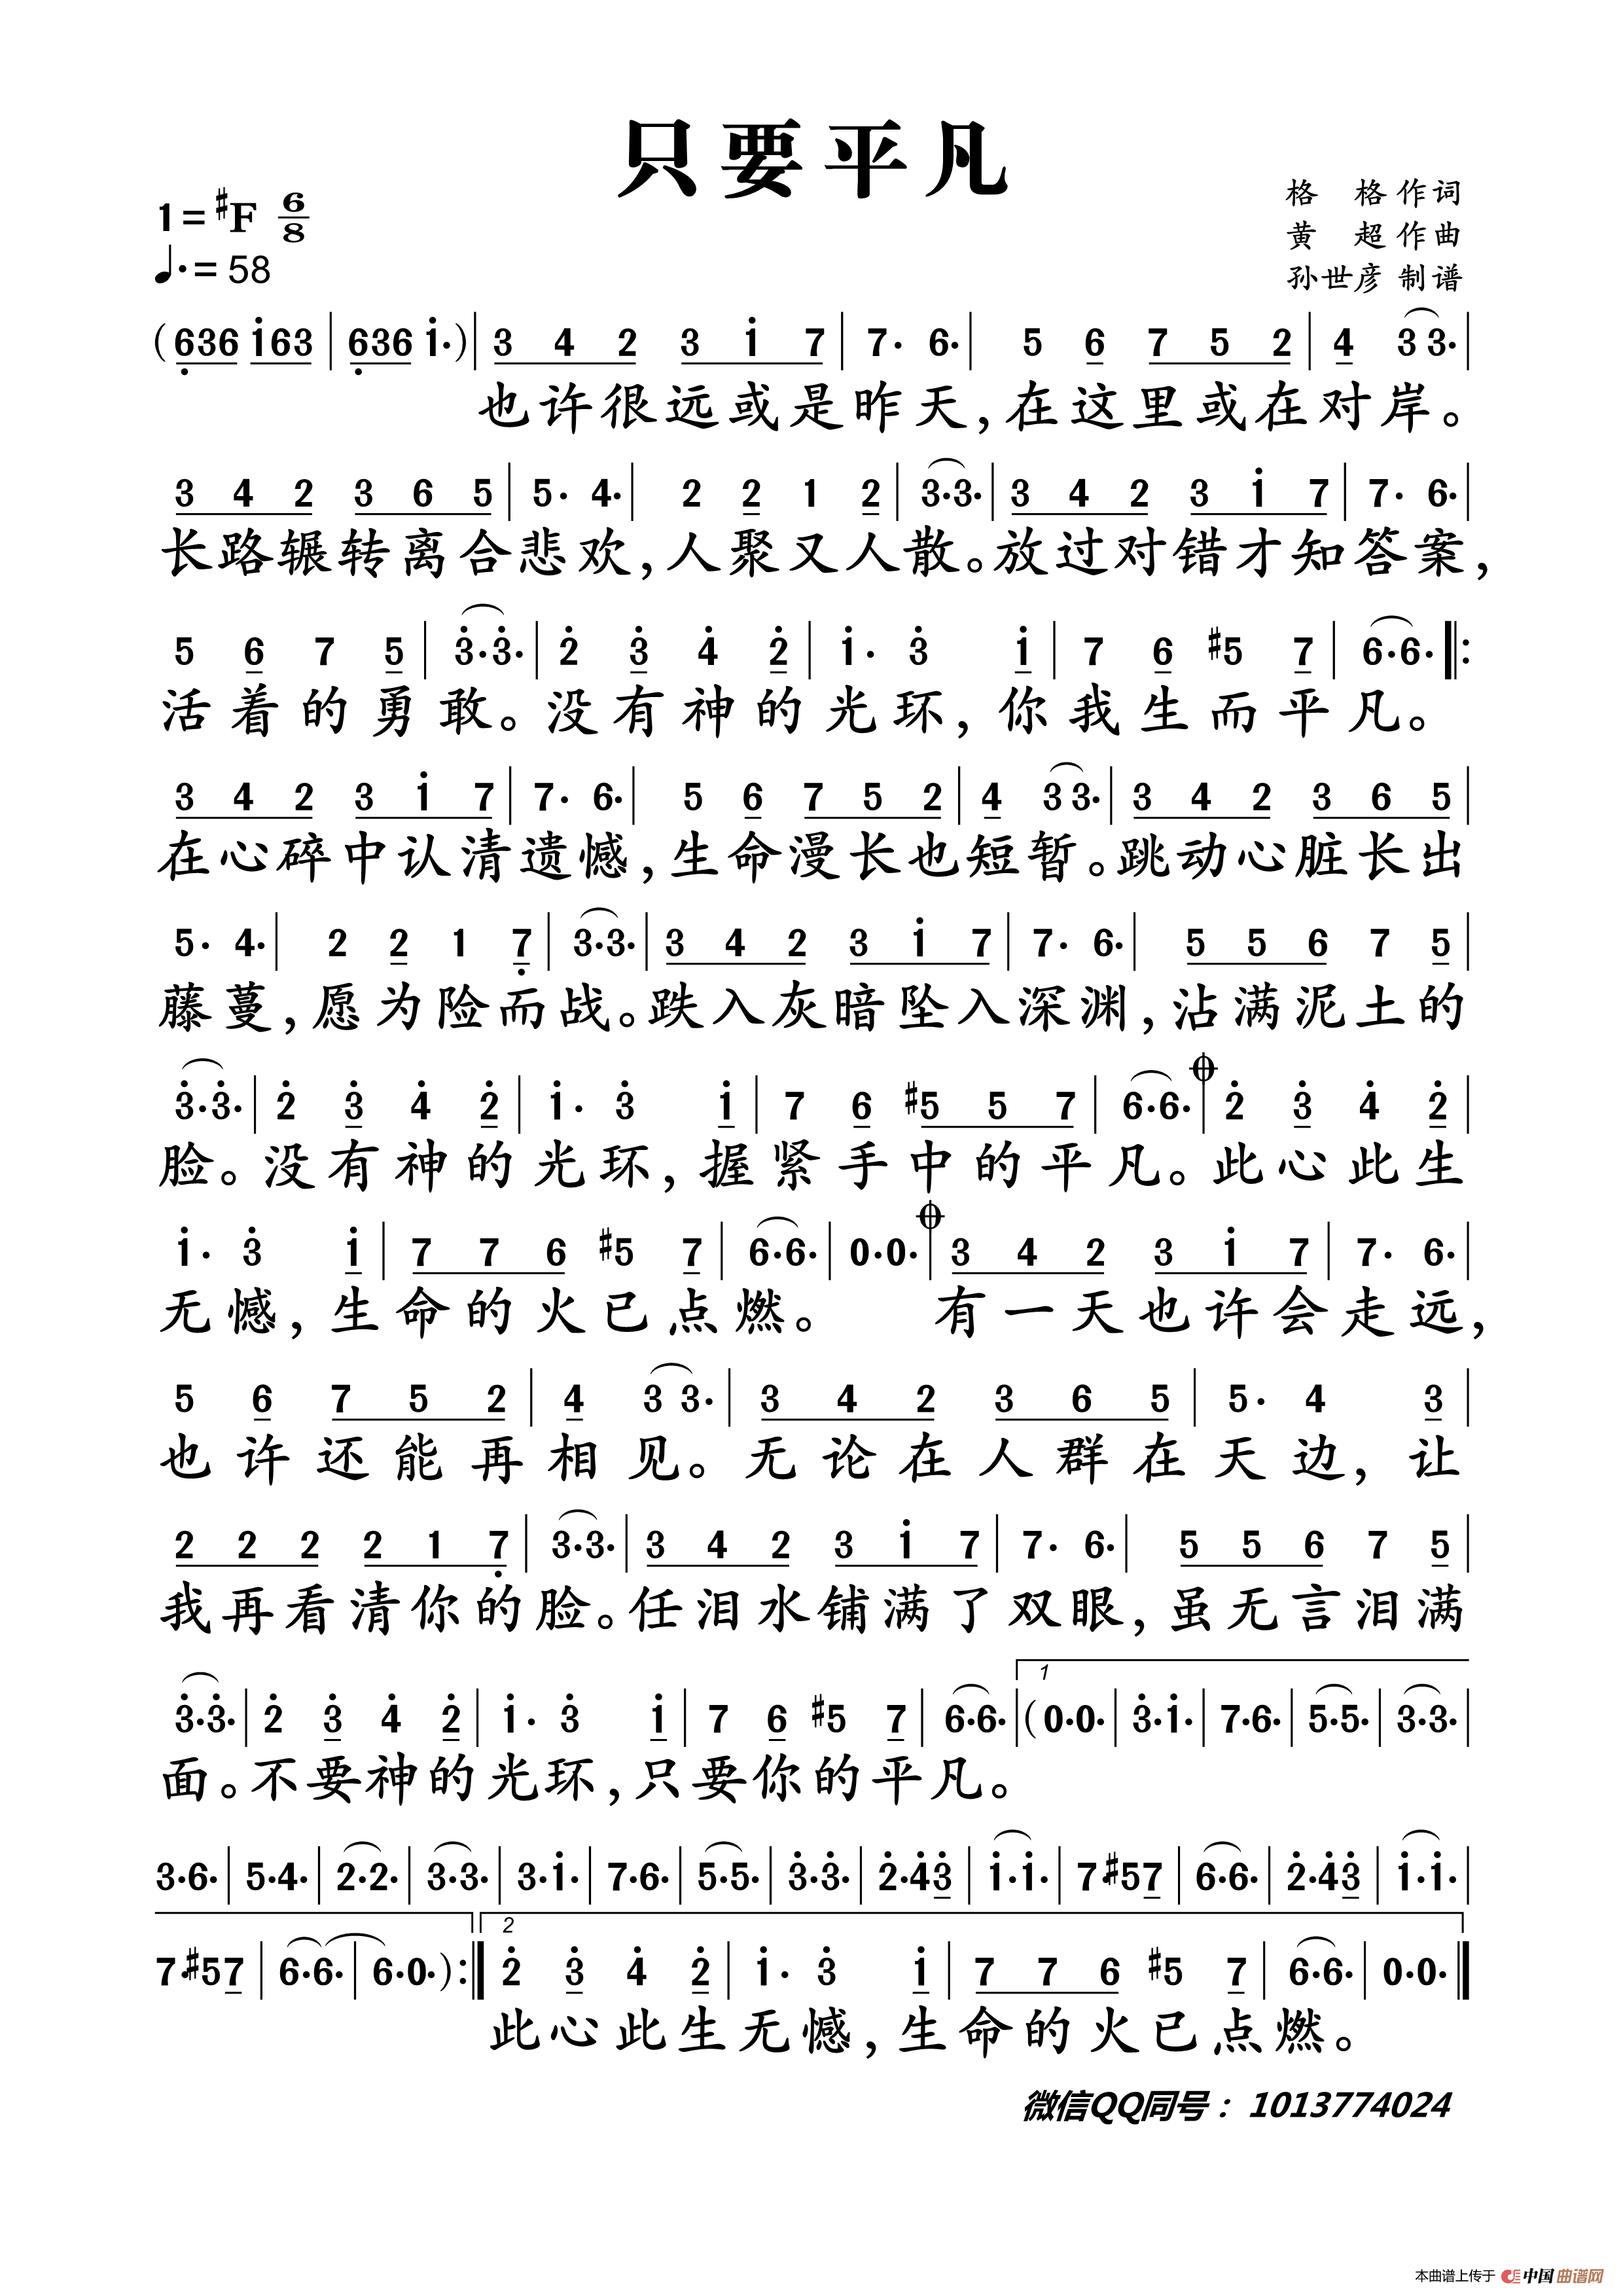 只要平凡
1=♯F 6/8
格 格 作词
黄 超 作曲
孙世彦 制谱
♩. = 58
(636 i63 | 636 i·) | 3 4 2 3 i 7 | 7· 6· | 5 6 7 5 2 | 4 3 3· |
也许很远或是昨天,在这里或在对岸。
3 4 2 3 6 5 | 5· 4· | 2 2 1 2 | 3·3· | 3 4 2 3 i 7 | 7· 6· |
长路辗转离合悲欢,人聚又人散。放过对错才知答案,
5 6 7 5 | 3·3· | 2 3 4 2 | i· 3 i | 7 6 ♯5 7 | 6·6· |:
活着的勇敢。没有神的光环,你我生而平凡。
3 4 2 3 i 7 | 7· 6· | 5 6 7 5 2 | 4 3 3· | 3 4 2 3 6 5 |
在心碎中认清遗憾,生命漫长也短暂。跳动心脏长出
5· 4· | 2 2 1 7 | 3·3· | 3 4 2 3 i 7 | 7· 6· | 5 5 6 7 5 |
藤蔓,愿为险而战。跌入灰暗坠入深渊,沾满泥土的
3·3· | 2 3 4 2 | i· 3 i | 7 6 ♯5 5 7 | 6·6· | 2 3 4 2 |
脸。没有神的光环,握紧手中的平凡。此心此生
i· 3 i | 7 7 6 ♯5 7 | 6·6· | 0·0· | 3 4 2 3 i 7 | 7· 6· |
无憾,生命的火已点燃。 有一天也许会走远,
5 6 7 5 2 | 4 3 3· | 3 4 2 3 6 5 | 5· 4 3 |
也许还能再相见。无论在人群在天边,让
2 2 2 2 1 7 | 3·3· | 3 4 2 3 i 7 | 7· 6· | 5 5 6 7 5 |
我再看清你的脸。任泪水铺满了双眼,虽无言泪满
1
3·3· | 2 3 4 2 | i· 3 i | 7 6 ♯5 7 | 6·6· | (0·0· | 3·i· | 7·6· | 5·5· | 3·3· |
面。不要神的光环,只要你的平凡。
3·6· | 5·4· | 2·2· | 3·3· | 3·i· | 7·6· | 5·5· | 3·3· | 2·43 | i·i· | 7·♯57 | 6·6· | 2·43 | i·i· |
2
7·♯57 | 6·6· | 6·0·) :| 2 3 4 2 | i· 3 i | 7 7 6 ♯5 7 | 6·6· | 0·0· |
此心此生无憾,生命的火已点燃。
微信QQ同号:1013774024
本曲谱上传于 中国曲谱网